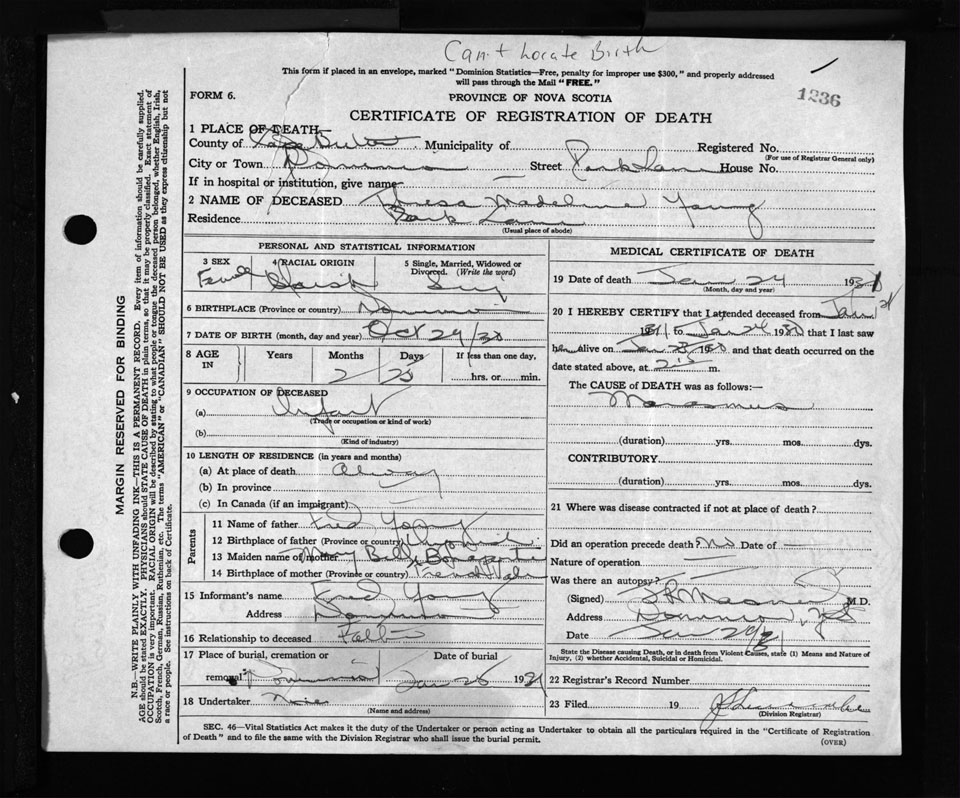 Can't Locate Birth
This form if placed in an envelope, marked "Dominion Statistics—Free, penalty for improper use $300," and properly addressed
will pass through the Mail "FREE."
1236
FORM 6.
PROVINCE OF NOVA SCOTIA
CERTIFICATE OF REGISTRATION OF DEATH
1 PLACE OF DEATH—
County of Cape Breton. Municipality of Registered No.
(For use of Registrar General only)
City or Town Dominion Street Park Lane House No.
If in hospital or institution, give name
2 NAME OF DECEASED Theresa Madeline Young
Residence Park Lane
(Usual place of abode)
PERSONAL AND STATISTICAL INFORMATION
3 SEX 4 RACIAL ORIGIN 5 Single, Married, Widowed or
Divorced. (Write the word)
6 BIRTHPLACE (Province or country) Dominion
7 DATE OF BIRTH (month, day and year) Oct 29/30
8 AGE IN Years Months Days If less than one day,
2 25 hrs. or min.
9 OCCUPATION OF DECEASED
(a) Infant
(Trade or occupation or kind of work)
(b)
(Kind of industry)
10 LENGTH OF RESIDENCE (in years and months)
(a) At place of death
(b) In province
(c) In Canada (if an immigrant)
Parents
11 Name of father Fred Young
12 Birthplace of father (Province or country)
13 Maiden name of mother Mary Bell
14 Birthplace of mother (Province or country)
15 Informant's name Fred Young
Address Dominion
16 Relationship to deceased Father
17 Place of burial, cremation or Date of burial
removal Dominion Jan 26 1931
18 Undertaker None
(Name and address)
MEDICAL CERTIFICATE OF DEATH
19 Date of death Jan 24 1931
(Month, day and year)
20 I HEREBY CERTIFY that I attended deceased from Jan
1931 to Jan 24 1931 that I last saw
alive on Jan 23 and that death occurred on the
date stated above, at m.
The CAUSE of DEATH was as follows:—
Marasmus
(duration) yrs. mos. dys.
CONTRIBUTORY
(duration) yrs. mos. dys.
21 Where was disease contracted if not at place of death?
Did an operation precede death? No Date of
Nature of operation
Was there an autopsy?
(Signed) M.D.
Address Dominion, N.S.
Date Jan
State the Disease causing Death, or in death from Violent Causes, state (1) Means and Nature of
Injury, (2) whether Accidental, Suicidal or Homicidal.
22 Registrar's Record Number
23 Filed 19
(Division Registrar)
SEC. 46—Vital Statistics Act makes it the duty of the Undertaker or person acting as Undertaker to obtain all the particulars required in the "Certificate of Registration
of Death" and to file the same with the Division Registrar who shall issue the burial permit.
(OVER)
MARGIN RESERVED FOR BINDING
N.B.—WRITE PLAINLY WITH UNFADING INK—THIS IS A PERMANENT RECORD. Every item of information should be carefully supplied.
AGE should be stated EXACTLY. PHYSICIANS should STATE CAUSE OF DEATH in plain terms, so that it may be properly classified. Exact statement of
OCCUPATION is very important. RACIAL ORIGIN will be described by stating to what people or tongue the deceased person belonged, whether English, Irish,
Scotch, French, German, Russian, Ruthenian, etc. The terms "AMERICAN" or "CANADIAN" SHOULD NOT BE USED as they express citizenship but not
a race or people. See instructions on back of Certificate.